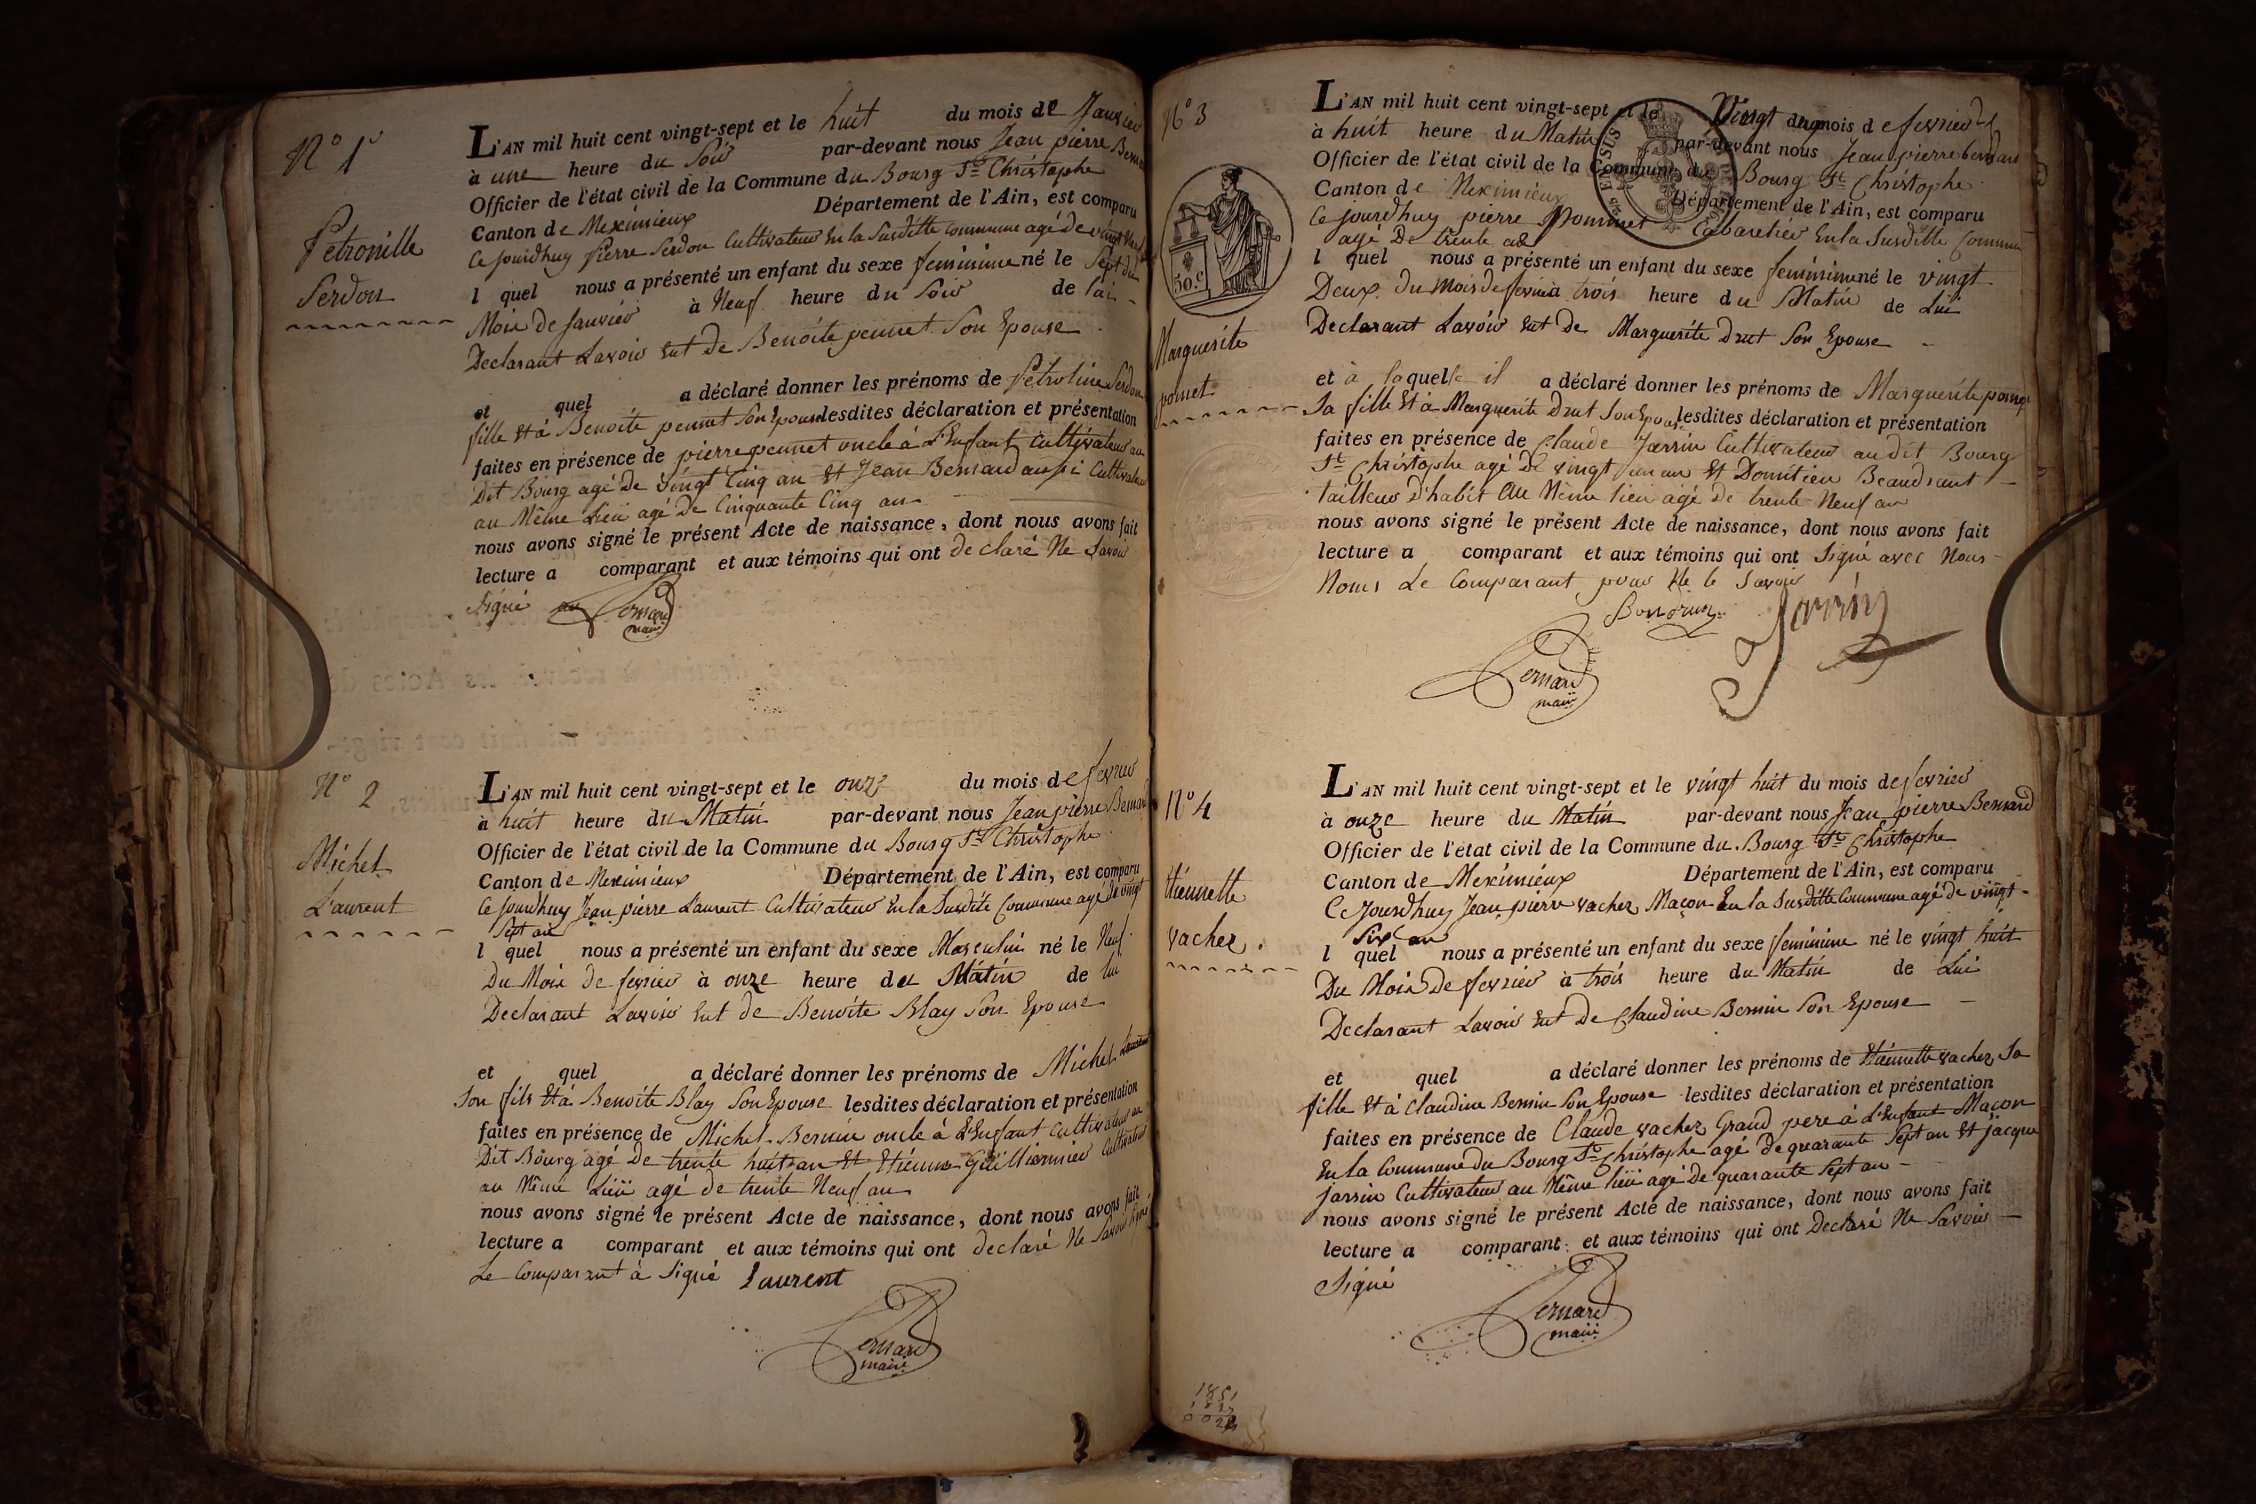 N° 1er
Petronille
Serdon
L'AN mil huit cent vingt-sept et le huit du mois de Janvier
à une heure du Soir par-devant nous Jean pierre Bernard
Officier de l'état civil de la Commune du Bourg St Christophe
Canton de Meximieux Département de l'Ain, est comparu
Ce jourdhuy Pierre Serdon Cultivateur En la Susditte commune agé de vingt
l quel nous a présenté un enfant du sexe feminime né le Sept du
Mois de Janvier à Neuf heure du Soir de lui
Declarant Lavoir Eut de Benoite pennet Son Epouse
et quel a déclaré donner les prénoms de Petroline Serdon
fille Et à Benoite pennet Son Epouse lesdites déclaration et présentation
faites en présence de pierre pennet oncle à L'Enfant Cultivateur au
Dit Bourg agé De Vingt Cinq an Et Jean Bernard aussi Cultivateur
au Même Lieu agé de Cinquante Cinq an
nous avons signé le présent Acte de naissance, dont nous avons fait
lecture a comparant et aux témoins qui ont declaré Ne Savoir
Signé Bernard
maire
N° 2
Michel
Laurent
L'AN mil huit cent vingt-sept et le onze du mois de fevrier
à huit heure du Matin par-devant nous Jean pierre Bernard
Officier de l'état civil de la Commune du Bourg St Christophe
Canton de Meximieux Département de l'Ain, est comparu
Ce Jourdhuy Jean pierre Laurent Cultivateur En la Susdite Commune agé de vingt
Sept an
l quel nous a présenté un enfant du sexe Masculin né le Neuf
Du Mois de fevrier à onze heure du Matin de lui
Declarant Lavoir Eut de Benoite Blay Son Epouse
et quel a déclaré donner les prénoms de Michel Laurent
Son fils Et à Benoite Blay Son Epouse lesdites déclaration et présentation
faites en présence de Michel Bernin oncle à L'Enfant Cultivateur au
Dit Bourg agé De trente huit an Et Etienne Guillermier Cultivateur
au Même Lieu agé de trente Neuf an
nous avons signé le présent Acte de naissance, dont nous avons fait
lecture a comparant et aux témoins qui ont declaré Ne Savoir Signé
Le Comparant à Signé Laurent
Bernard
maire
N° 3
50.c
Marguerite
pomet
L'AN mil huit cent vingt-sept et le Vingt du mois de fevrier
à huit heure du Matin par-devant nous Jean pierre bernard
Officier de l'état civil de la Commune de Bourg St Christophe
Canton de Meximieux Département de l'Ain, est comparu
Ce jourdhuy pierre pommet Cabaretier En la Susditte Commune
agé De trente
l quel nous a présenté un enfant du sexe feminime né le vingt
Deux du Mois de fevrier à trois heure du Matin de Lui
Declarant Lavoir Eut De Marguerite Drut Son Epouse
et à laquelle il a déclaré donner les prénoms de Marguerite pomet
Sa fille Et à Marguerite Drut Son Epouse lesdites déclaration et présentation
faites en présence de Claude Jarrin Cultivateur au dit Bourg
St Christophe agé De vingt un an Et Domitien Beaudrant
tailleur d'habit Au Même lieu agé De trente Neuf an
nous avons signé le présent Acte de naissance, dont nous avons fait
lecture a comparant et aux témoins qui ont Signé avec Nous
Nom Le Comparant pour Ne le Savoir
Jarrin
Bernard
maire
N° 4
Etiennette
vachez
L'AN mil huit cent vingt-sept et le vingt huit du mois de fevrier
à onze heure du Matin par-devant nous Jean pierre Bernard
Officier de l'état civil de la Commune du Bourg St Christophe
Canton de Meximieux Département de l'Ain, est comparu
Ce Jourdhuy Jean pierre vachez Maçon En la Susditte Commune agé de vingt
Six an
l quel nous a présenté un enfant du sexe feminime né le vingt huit
Du Mois De fevrier à trois heure du Matin de Lui
Declarant Lavoir Eut De Claudine Bernin Son Epouse
et quel a déclaré donner les prénoms de Etiennette vachez Sa
fille Et à Claudine Bernin Son Epouse lesdites déclaration et présentation
faites en présence de Claude vachez Grand pere à L'Enfant Maçon
En la Commune du Bourg St Christophe agé de quarante Sept an Et Jacque
Jarrin Cultivateur au Même lieu agé De quarante Sept an
nous avons signé le présent Acte de naissance, dont nous avons fait
lecture a comparant et aux témoins qui ont Declaré Ne Savoir
Signé
Bernard
maire